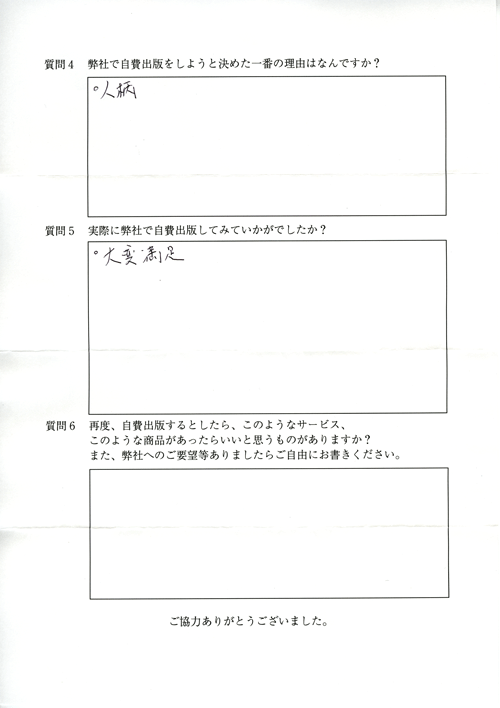 質問4 弊社で自費出版をしようと決めた一番の理由はなんですか？
○人柄
質問5 実際に弊社で自費出版してみていかがでしたか？
○大変満足
質問6 再度、自費出版するとしたら、このようなサービス、
このような商品があったらいいと思うものがありますか？
また、弊社へのご要望等ありましたらご自由にお書きください。
ご協力ありがとうございました。